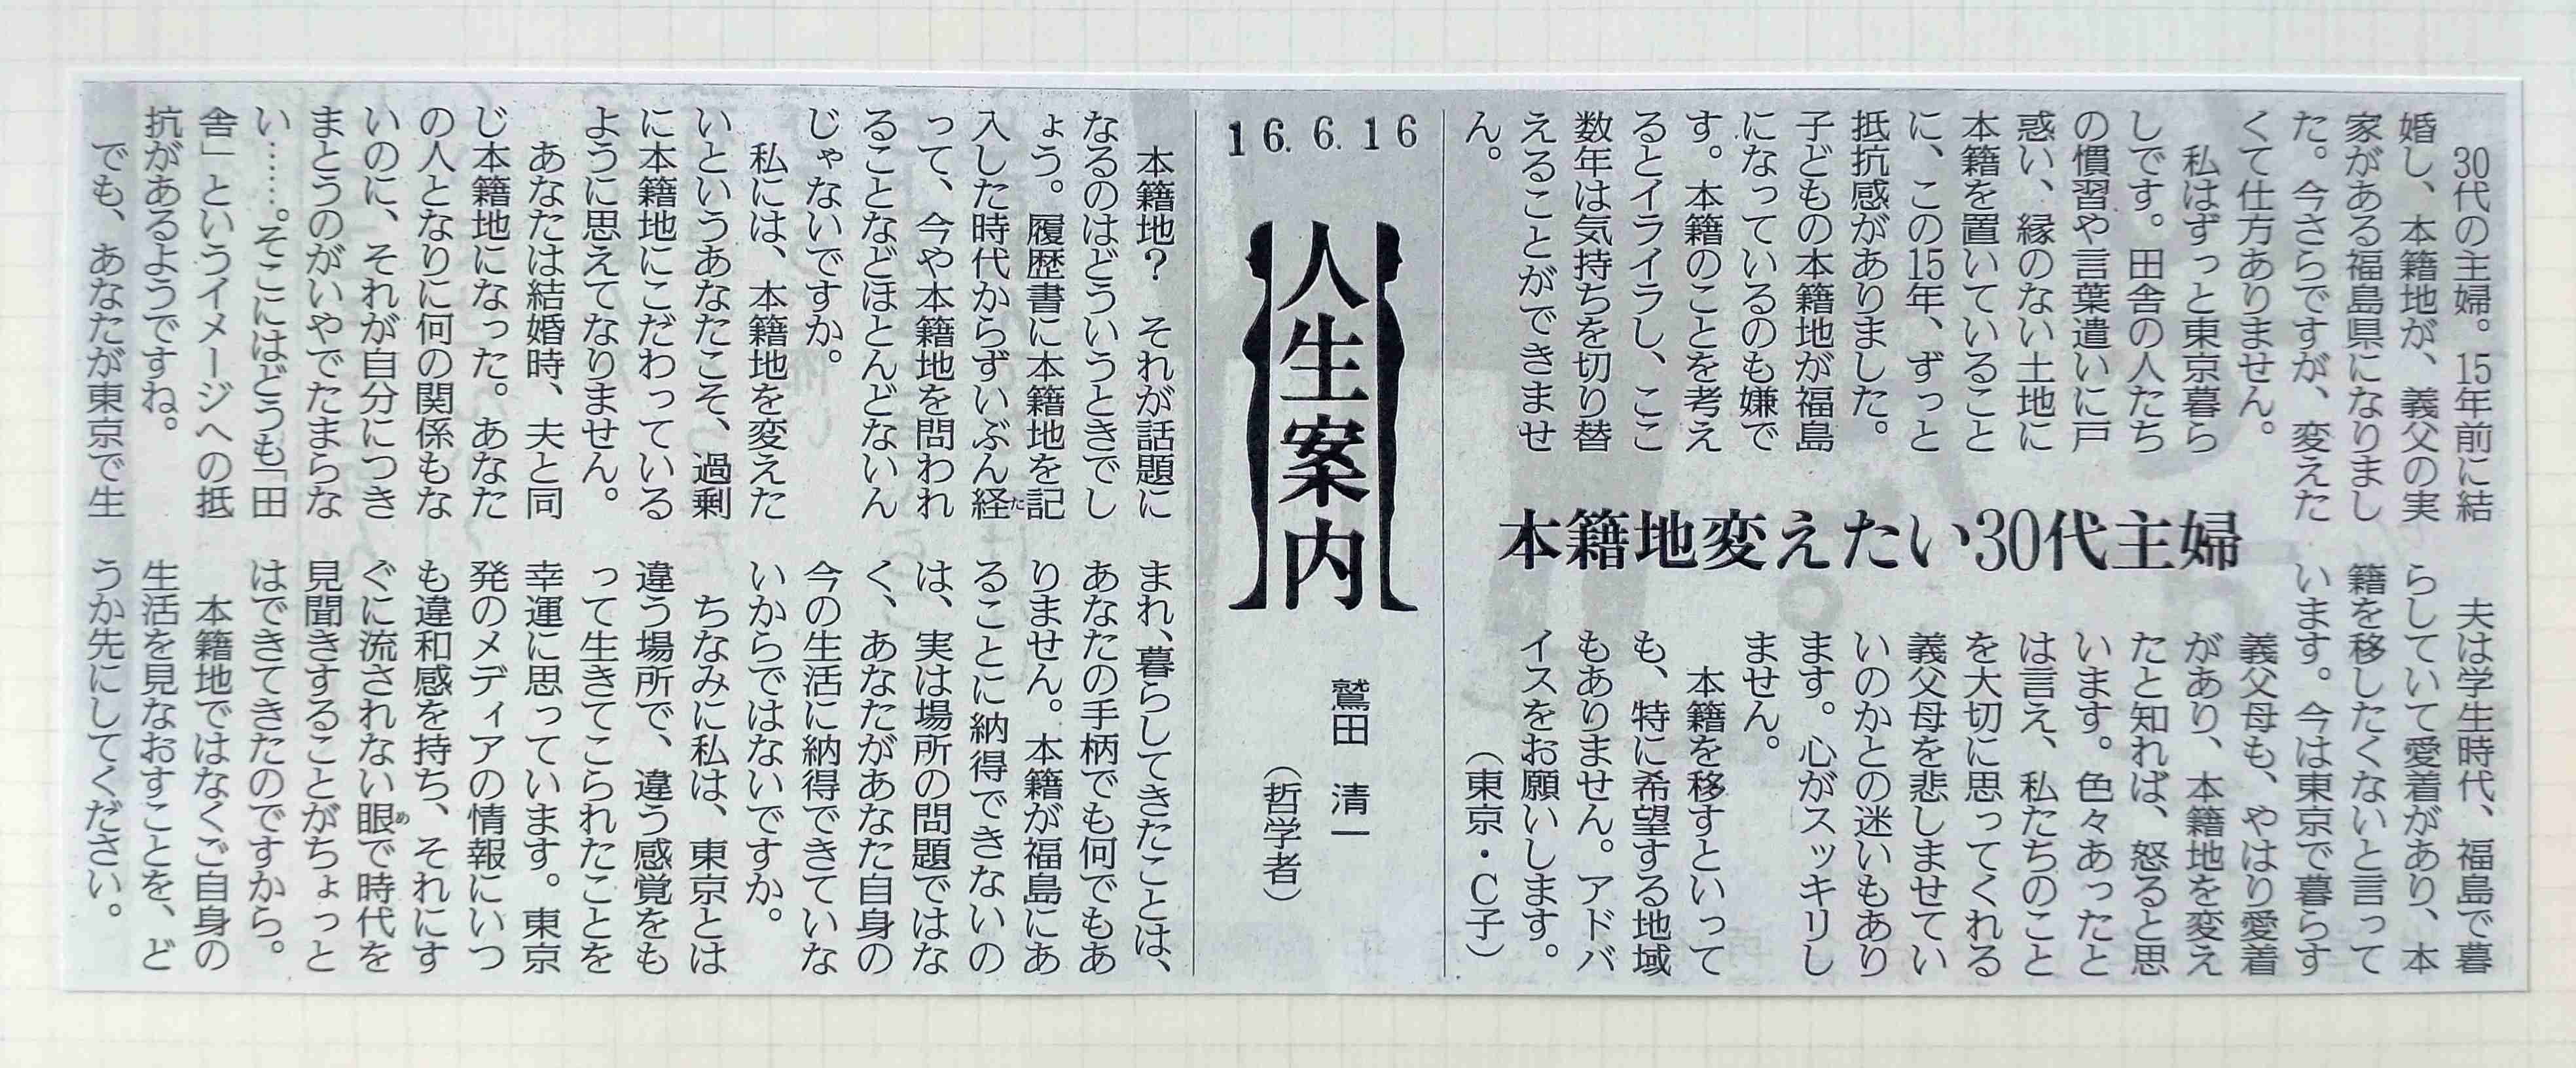 本籍地変えたい30代主婦
30代の主婦。15年前に結
婚し、本籍地が、義父の実
家がある福島県になりまし
た。今さらですが、変えた
くて仕方ありません。
私はずっと東京暮ら
しです。田舎の人たち
の慣習や言葉遣いに戸
惑い、縁のない土地に
本籍を置いていること
に、この15年、ずっと
抵抗感がありました。
子どもの本籍地が福島
になっているのも嫌で
す。本籍のことを考え
るとイライラし、ここ
数年は気持ちを切り替
えることができませ
ん。
夫は学生時代、福島で暮
らしていて愛着があり、本
籍を移したくないと言って
います。今は東京で暮らす
義父母も、やはり愛着
があり、本籍地を変え
たと知れば、怒ると思
います。色々あったと
は言え、私たちのこと
を大切に思ってくれる
義父母を悲しませてい
いのかとの迷いもあり
ます。心がスッキリし
ません。
本籍を移すといって
も、特に希望する地域
もありません。アドバ
イスをお願いします。
（東京・C子）
16.6.16
人生案内
鷲田 清一
（哲学者）
本籍地？ それが話題に
なるのはどういうときでし
ょう。履歴書に本籍地を記
入した時代からずいぶん経た
って、今や本籍地を問われ
ることなどほとんどないん
じゃないですか。
私には、本籍地を変えた
いというあなたこそ、過剰
に本籍地にこだわっている
ように思えてなりません。
あなたは結婚時、夫と同
じ本籍地になった。あなた
の人となりに何の関係もな
いのに、それが自分につき
まとうのがいやでたまらな
い……。そこにはどうも「田
舎」というイメージへの抵
抗があるようですね。
でも、あなたが東京で生
まれ、暮らしてきたことは、
あなたの手柄でも何でもあ
りません。本籍が福島にあ
ることに納得できないの
は、実は場所の問題ではな
く、あなたがあなた自身の
今の生活に納得できていな
いからではないですか。
ちなみに私は、東京とは
違う場所で、違う感覚をも
って生きてこられたことを
幸運に思っています。東京
発のメディアの情報にいつ
も違和感を持ち、それにす
ぐに流されない眼めで時代を
見聞きすることがちょっと
はできてきたのですから。
本籍地ではなくご自身の
生活を見なおすことを、ど
うか先にしてください。